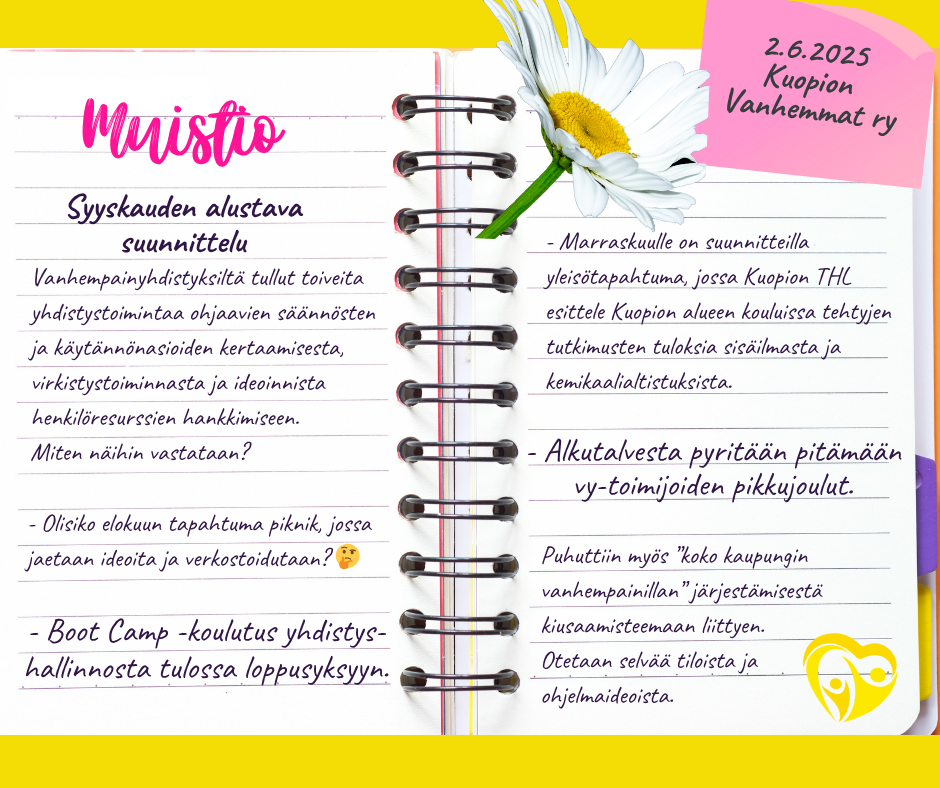 Muistio
Syyskauden alustava
suunnittelu
Vanhempainyhdistyksiltä tullut toiveita
yhdistystoimintaa ohjaavien säännösten
ja käytännönasioiden kertaamisesta,
virkistystoiminnasta ja ideoinnista
henkilöresurssien hankkimiseen.
Miten näihin vastataan?
- Olisiko elokuun tapahtuma piknik, jossa
jaetaan ideoita ja verkostoidutaan?🤔
- Boot Camp -koulutus yhdistys-
hallinnosta tulossa loppusyksyyn.
2.6.2025
Kuopion
Vanhemmat ry
- Marraskuulle on suunnitteilla
yleisötapahtuma, jossa Kuopion THL
esittele Kuopion alueen kouluissa tehtyjen
tutkimusten tuloksia sisäilmasta ja
kemikaalialtistuksista.
- Alkutalvesta pyritään pitämään
vy-toimijoiden pikkujoulut.
Puhuttiin myös ”koko kaupungin
vanhempainillan” järjestämisestä
kiusaamisteemaan liittyen.
Otetaan selvää tiloista ja
ohjelmaideoista.